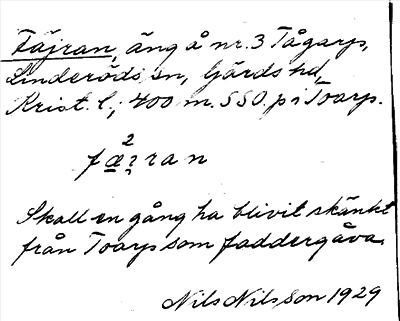 Fäjran, äng å nr. 3 Tågarp,
Linderöds sn, Gärds hd,
Krist. l., 400 m. SSO. p i Toarp.
2
fæɿran
Skall en gång ha blivit skänkt
från Toarp som faddergåva.
Nils Nilsson 1929